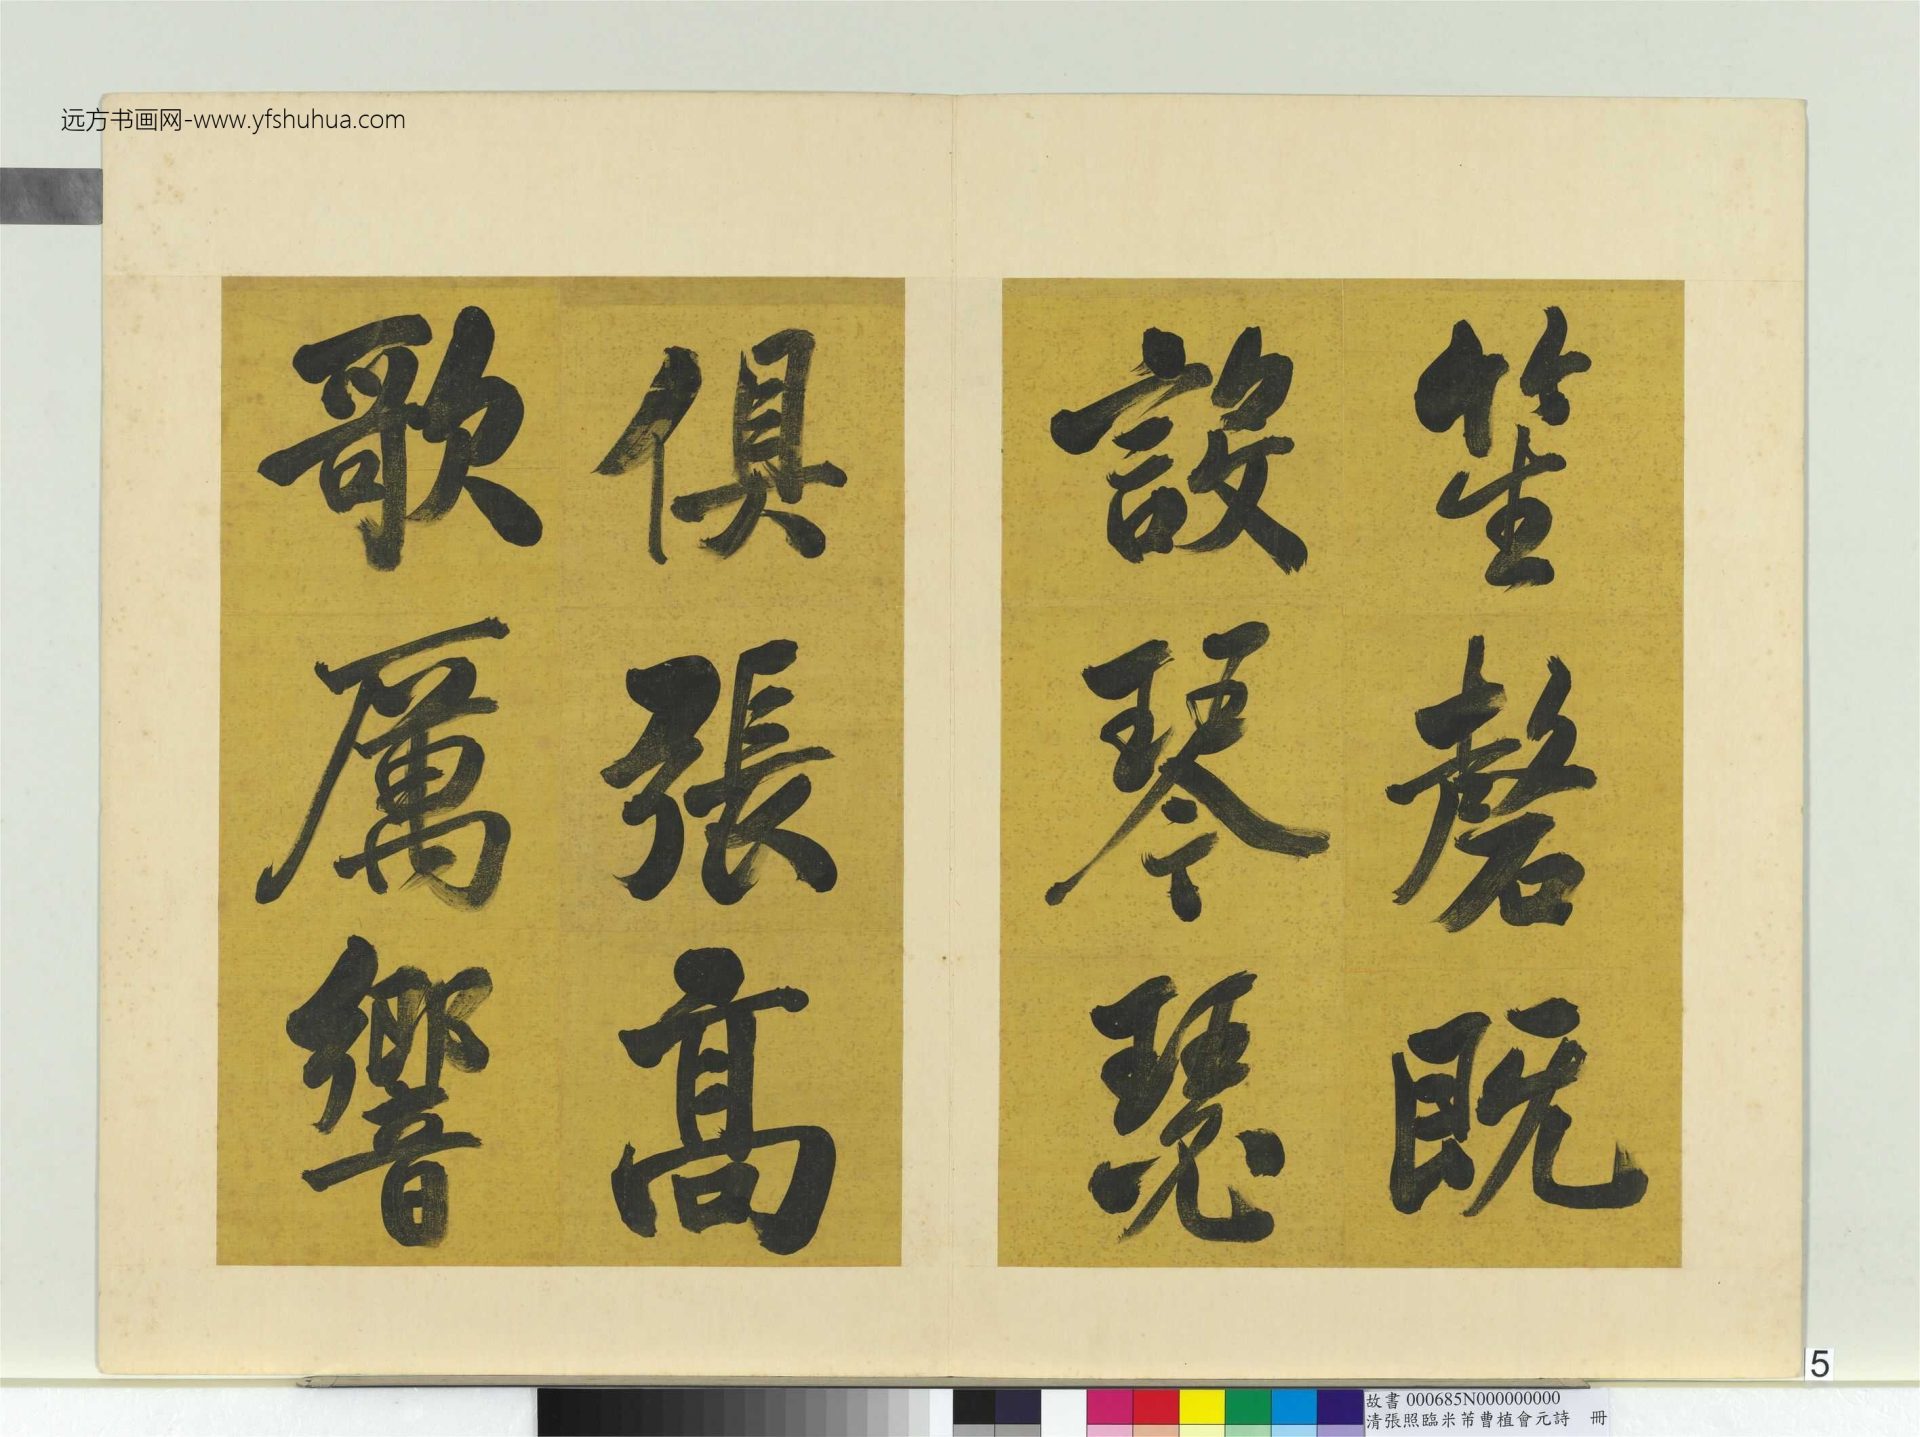 远方书画网-www.yfshuhua.com
笙磬既
設琴瑟
俱張高
歌厲響
5
故書 000685N000000000
清張照臨米芾曹植會元詩 冊